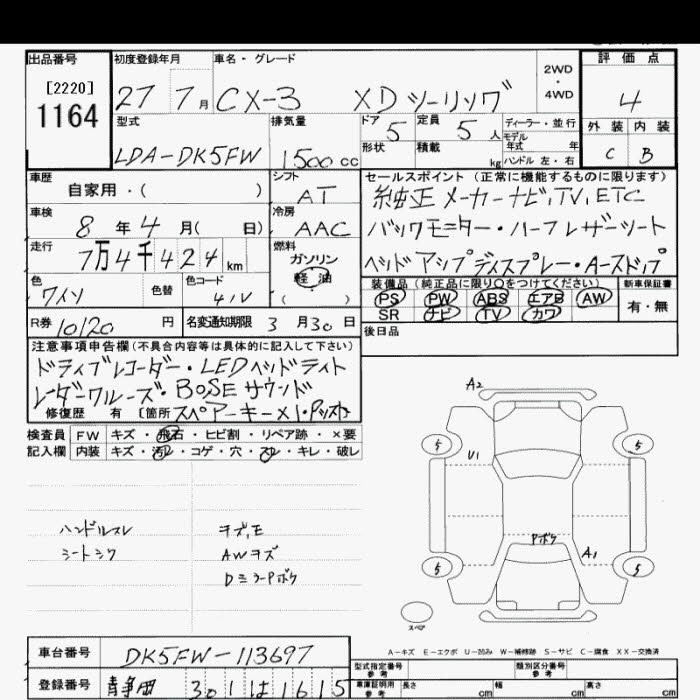 出品番号 初度登録年月 車名・グレード 2WD・4WD 評価点
[2220]
1164
27 7月 CX-3 XDツーリング 4
型式 排気量 ドア 5 定員 5人 ディーラー・並行 外装 内装
LDA-DK5FW 1500cc 形状 積載 kg モデル年式 年 ハンドル 左・右 C B
車歴 自家用・( ) シフト AT セールスポイント(正常に機能するものに限ります)
純正メーカーナビ,TV,ETC
車検 8年4月( 日) 冷房 AAC バックモニター・ハーフレザーシート
走行 7万4千424km 燃料 ガソリン 軽油 ( ) ヘッドアップディスプレー・アースドップ
色 ワイン 色替 色コード 41V 装備品(純正品に限り○をつけてください) 新車保証書
PS PW ABS エアB AW 有・無
SR ナビ TV カワ
R券 10120円 名変通知期限 3月30日 後日品
注意事項申告欄(不具合内容等は具体的に記入して下さい)
ドライブレコーダー・LEDヘッドライト
レーダークルーズ・BOSEサウンド
修復歴 有 [箇所 スペアーキー×1・
検査員 FW キズ・飛石・ヒビ割・リペア跡・×要
記入欄 内装 キズ・汚レ・コゲ・穴・スレ・キレ・破レ
ハンドルスレ キズ,E
シートシワ AWキズ
DミラーPボケ
A2
5 5
U1
Pボケ A1
5 5
スペア
A-キズ E-エクボ U-凹み W-補修跡 S-サビ C-腐食 XX-交換済
車台番号 DK5FW-113697 型式指定番号 参考 類別区分番号 参考
登録番号 静岡 301 は 1615 車庫証明用 参考 長さ cm 幅 cm 高さ cm